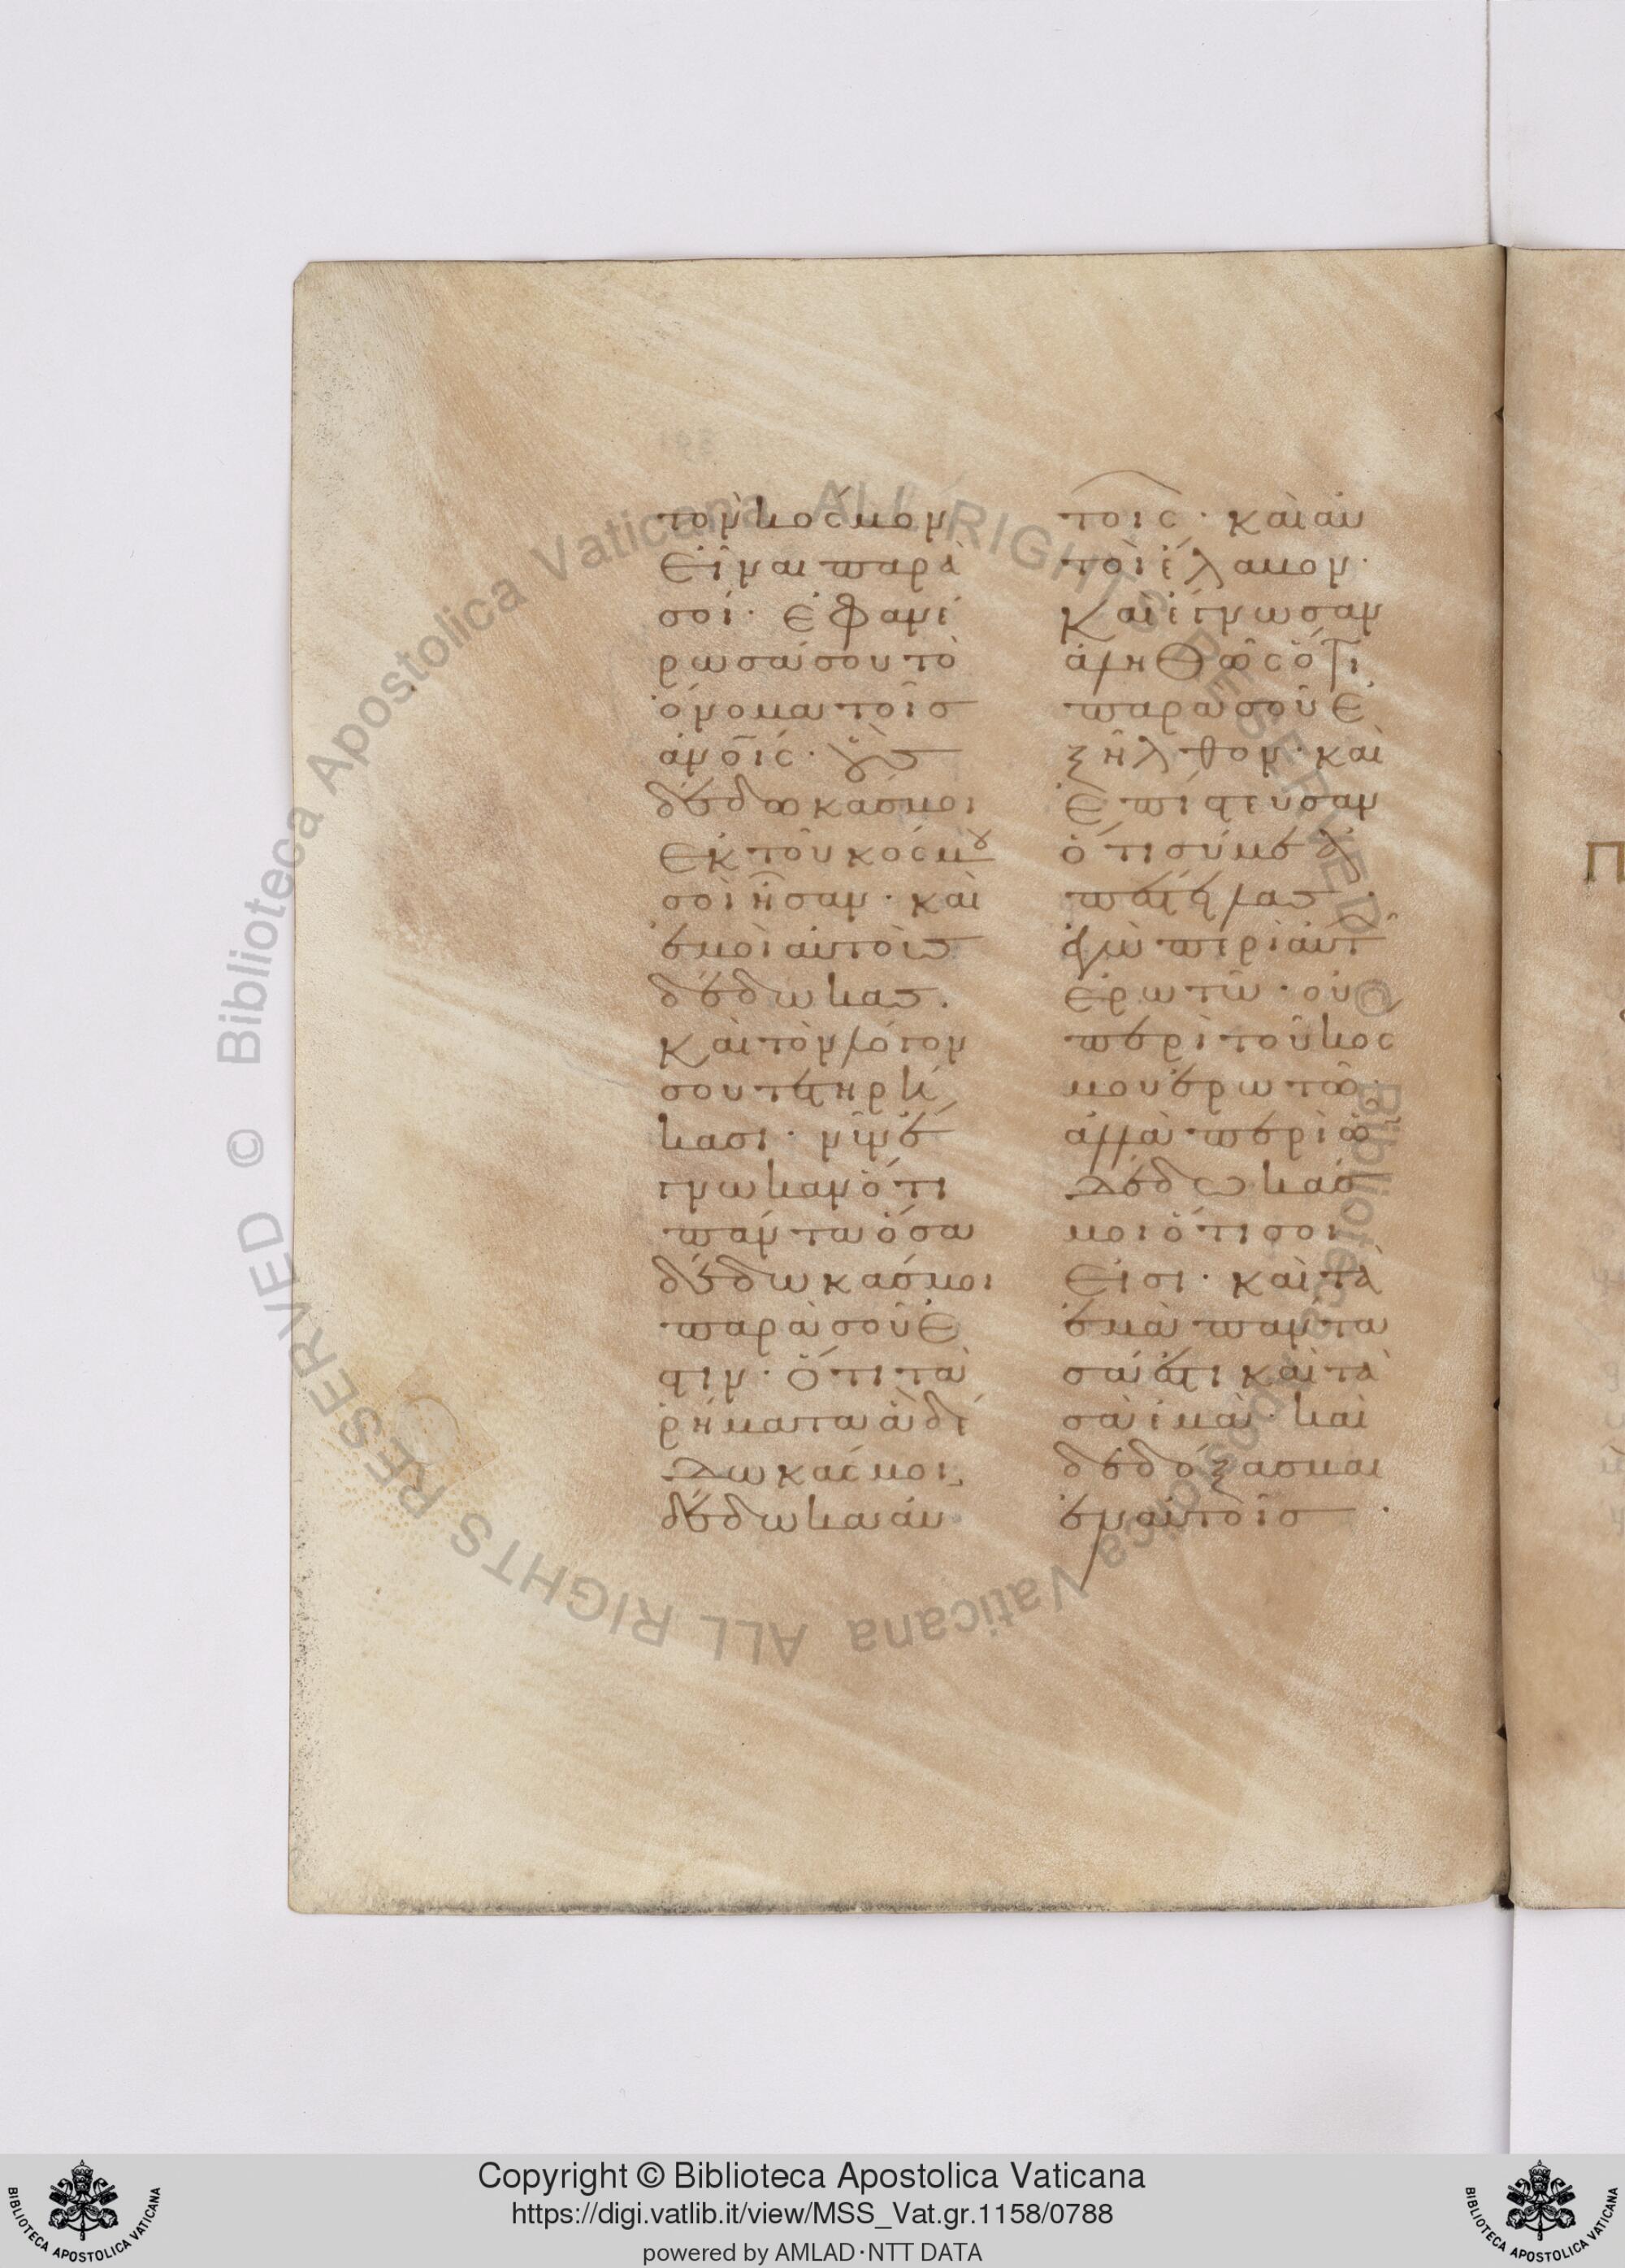 τὸν κόσμον
εἶναι παρὰ
σοί· ἐφανέ
ρωσά σου τὸ
ὄνομα τοῖς
ἀνοις· οὓς
δέδωκάς μοι
ἐκ τοῦ κόσμου
σοὶ ἦσαν· καὶ
ἐμοὶ αὐτοὺς
δέδωκας.
καὶ τὸν λόγον
σου τετηρή
κασι· νῦν ἔ
γνωκαν ὅτι
πάντα ὅσα
δέδωκάς μοι
παρὰ σοῦ ἐ
στιν· ὅτι τὰ
ῥήματα ἃ δέ
δωκάς μοι,
δέδωκα αὐ
τοῖς· καὶ αὐ
τοὶ ἔλαβον·
καὶ ἔγνωσαν
ἀληθῶς ὅτι
παρὰ σοῦ ἐ
ξῆλθον· καὶ
ἐπίστευσαν
ὅτι σύ με ἀ
πέστειλας.
ἐγὼ περὶ αὐτῶν
ἐρωτῶ· οὐ
περὶ τοῦ κόσ
μου ἐρωτῶ·
ἀλλὰ περὶ ὧν
δέδωκάς
μοι ὅτι σοί
εἰσι· καὶ τὰ
ἐμὰ πάντα
σά ἐστι καὶ τὰ
σὰ ἐμά· καὶ
δεδόξασμαι
ἐν αὐτοῖς.
Copyright © Biblioteca Apostolica Vaticana
https://digi.vatlib.it/view/MSS_Vat.gr.1158/0788
powered by AMLAD·NTT DATA
© Biblioteca Apostolica Vaticana ALL RIGHTS RESERVED
© Biblioteca Apostolica Vaticana ALL RIGHTS RESERVED
BIBLIOTECA APOSTOLICA VATICANA
BIBLIOTECA APOSTOLICA VATICANA